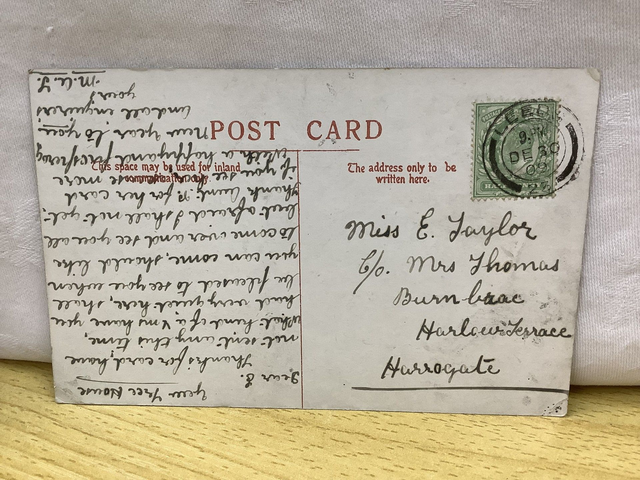 POST CARD
This space may be used for inland
communication only
The address only to be
written here.
LEEDS
DE 30
Miss E. Taylor
C/o. Mrs Thomas
Burnbrae
Harlow Terrace
Harrogate
Yew Tree House
Dear E.
Thanks for card, have
not sent any this time,
what kind of a Xmas have you
had, very quiet here, shall
be pleased to see you when
you can come, should like
to come over and see you all
but afraid I shall not yet.
Thank Aunt. P. for her card
if you see
with a happy and prosperous
New Year to you
and all enquirers
yours
M.A.T.